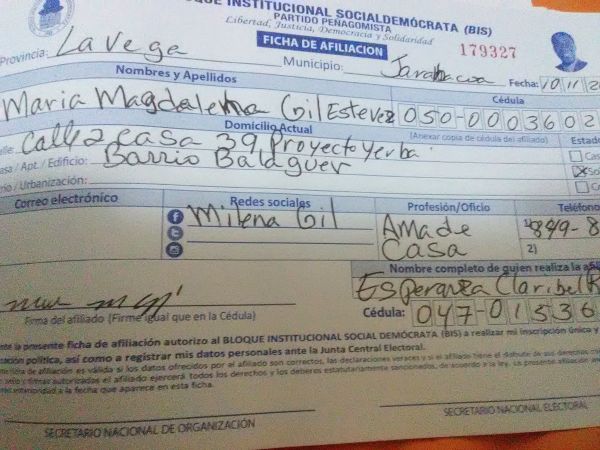 BLOQUE INSTITUCIONAL SOCIALDEMÓCRATA (BIS)
PARTIDO PEÑAGOMISTA
Libertad, Justicia, Democracia y Solidaridad
FICHA DE AFILIACION
179327
Provincia: La Vega Municipio: Jarabacoa Fecha: 10 11
Nombres y Apellidos Cédula
Maria Magdalena Gil Estevez 050-0003602
Domicilio Actual (Anexar copia de cédula del afiliado) Estado
Calle 2 casa 39 Proyecto Yerba
Casa / Apt. / Edificio: Barrio Balaguer
/ Urbanización:
Correo electrónico Redes sociales Profesión/Oficio Teléfono
Milena Gil Ama de Casa 1) 849-8
2)
Nombre completo de quien realiza la
Esperanza Claribel
Cédula: 047-01536
Firma del afiliado (Firme igual que en la Cédula)
la presente ficha de afiliación autorizo al BLOQUE INSTITUCIONAL SOCIAL DEMÓCRATA (BIS) a realizar mi inscripción única y
política, así como a registrar mis datos personales ante la Junta Central Electoral.
SECRETARIO NACIONAL DE ORGANIZACIÓN
SECRETARIO NACIONAL ELECTORAL